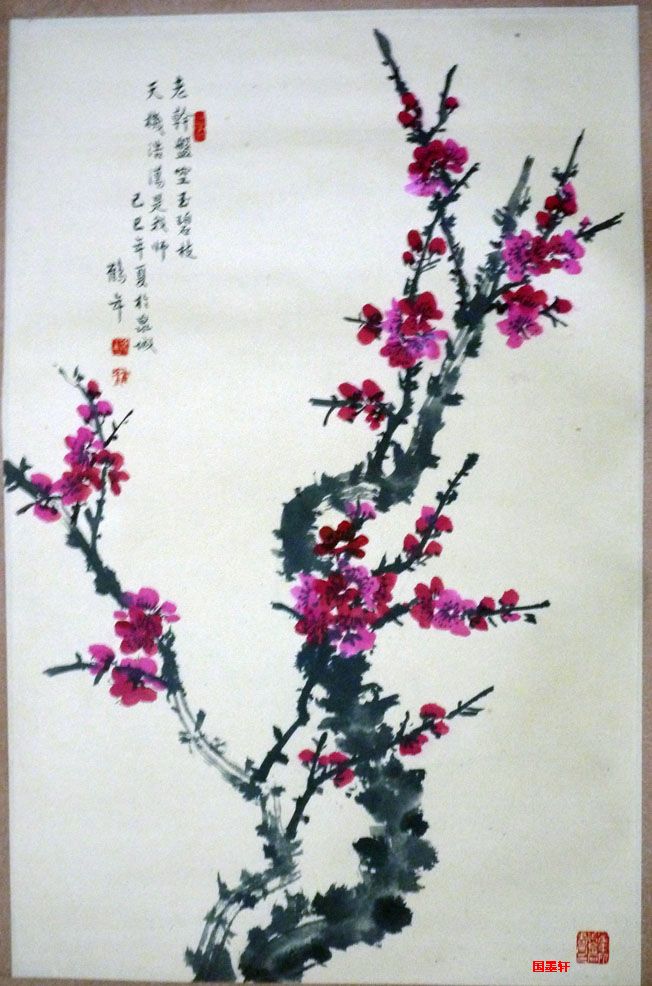 老幹盤空玉碧枝
天機浩蕩是我師
己巳年夏於泉城
鶴年
国墨轩